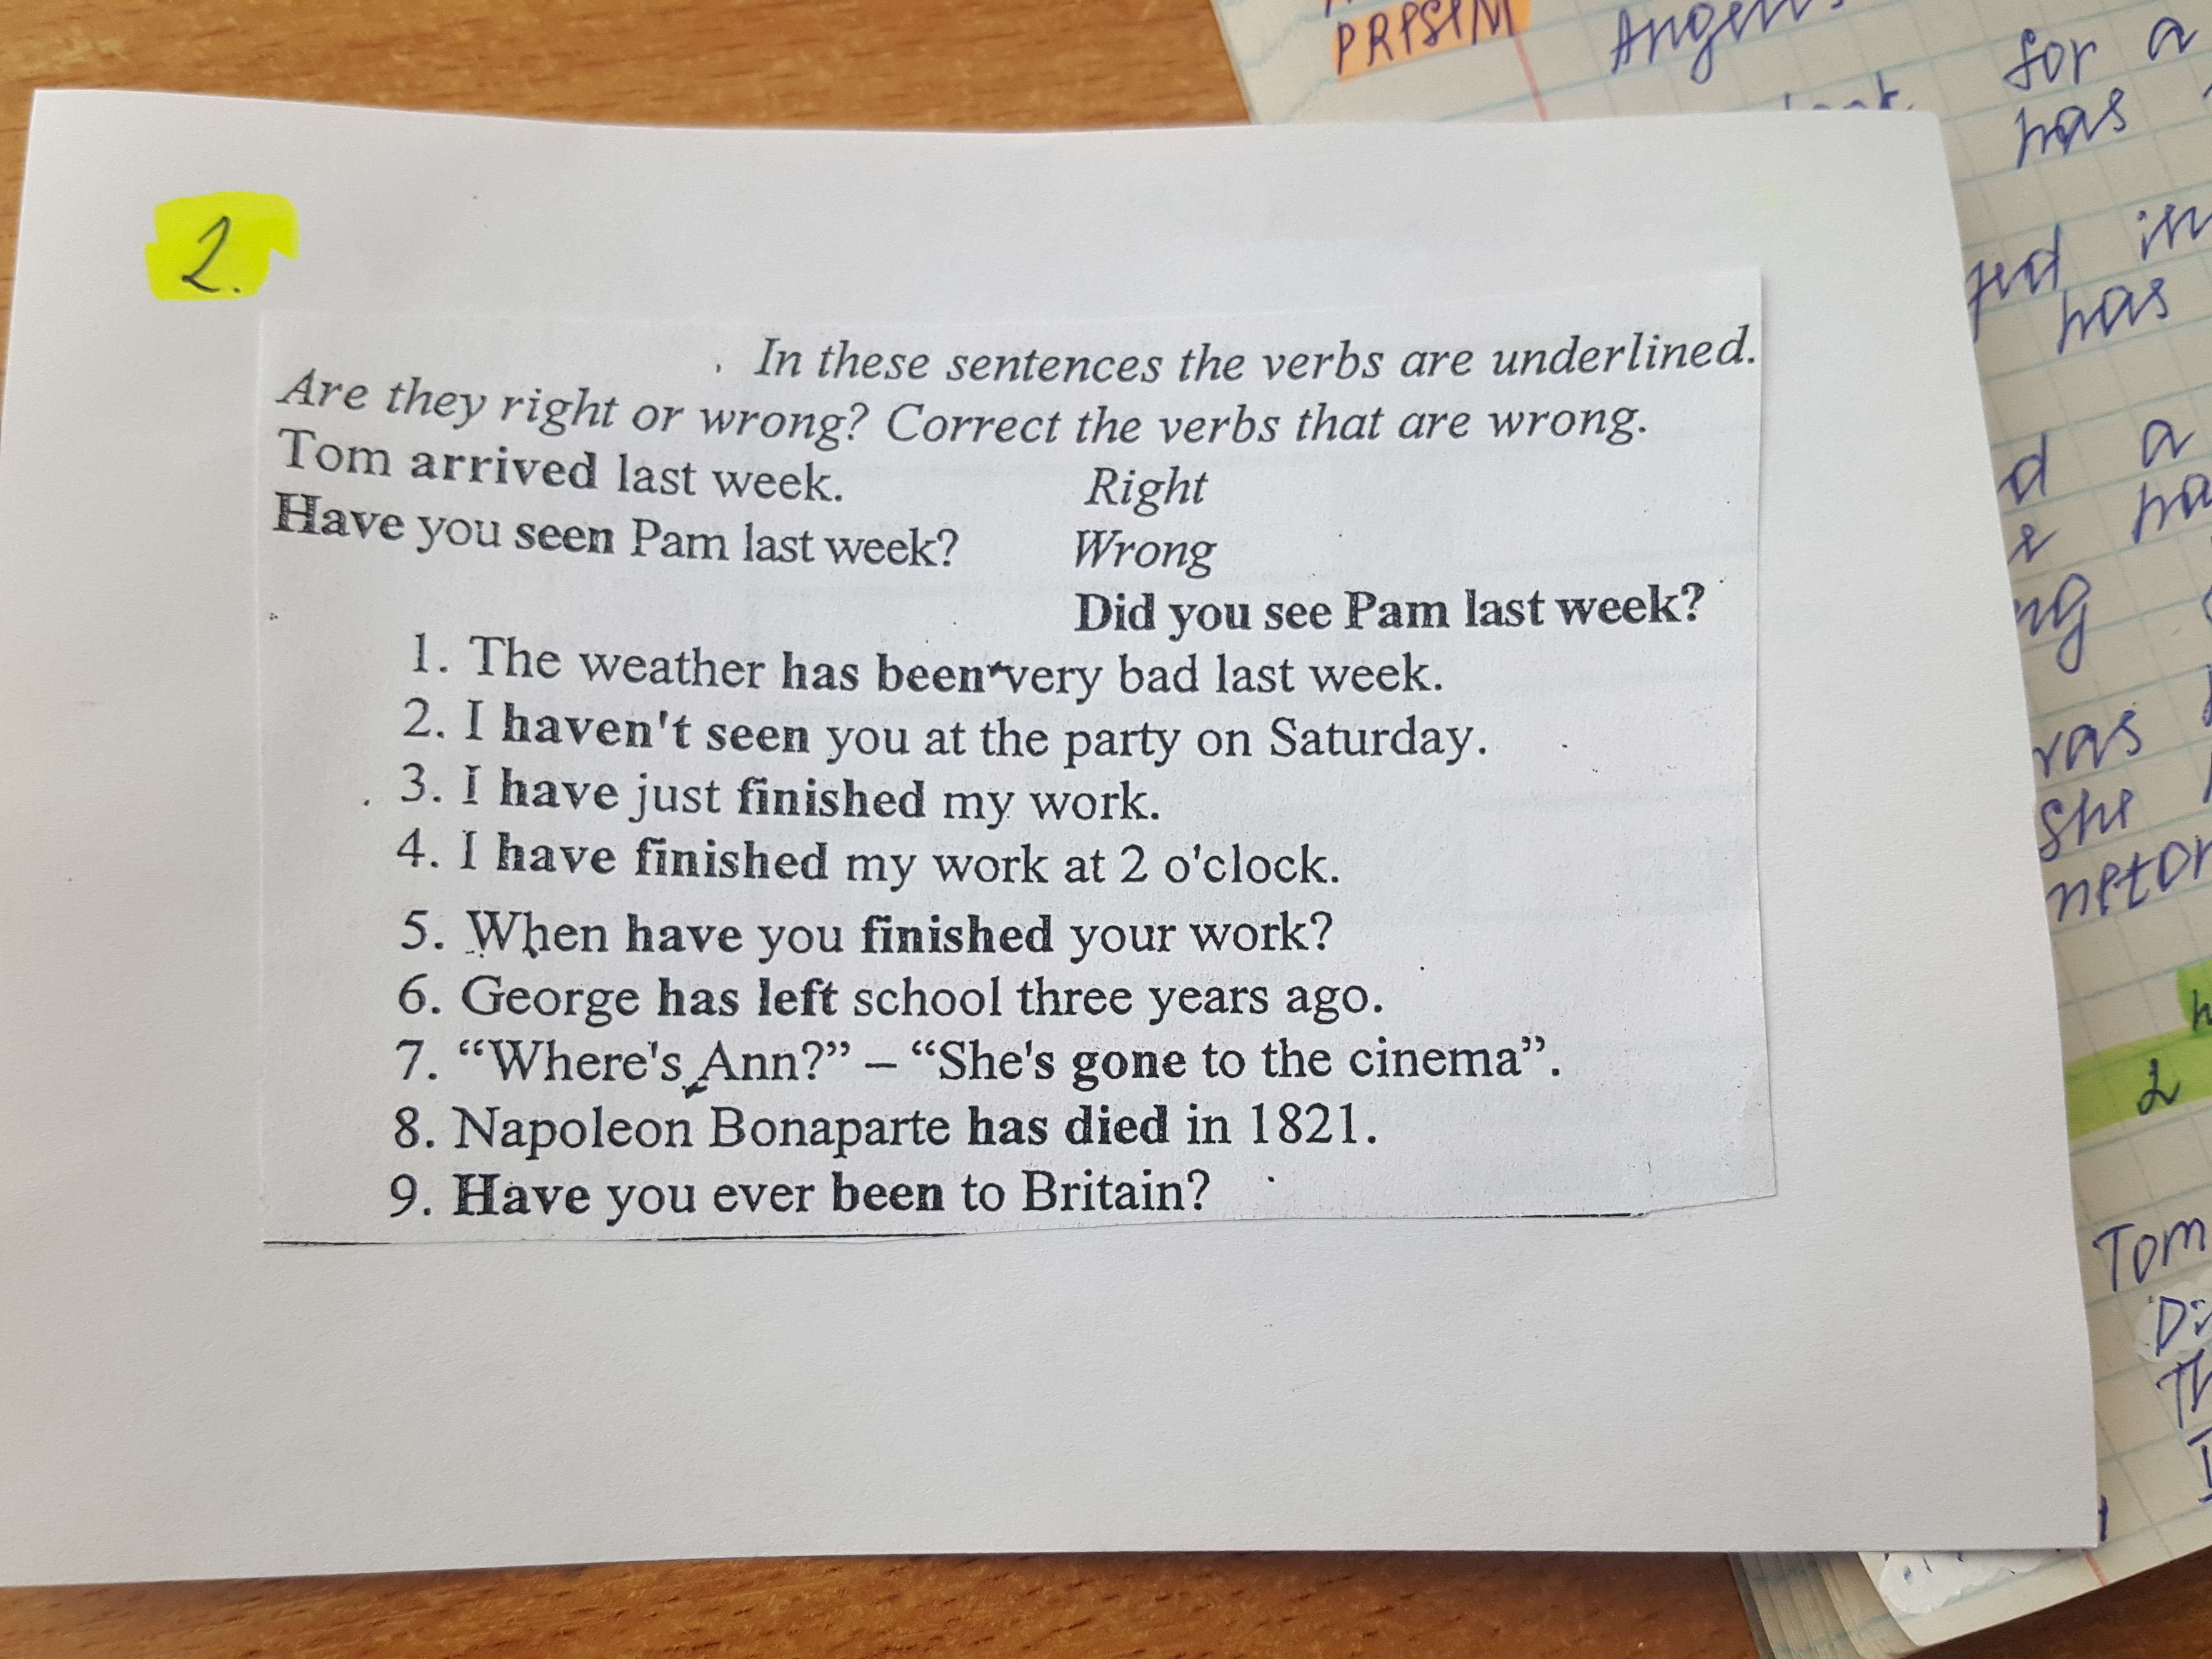 PRESENT
for a
has
2.
in
has
In these sentences the verbs are underlined.
Are they right or wrong? Correct the verbs that are wrong.
Tom arrived last week. Right
Have you seen Pam last week? Wrong
Did you see Pam last week?
1. The weather has been very bad last week.
2. I haven't seen you at the party on Saturday.
3. I have just finished my work.
4. I have finished my work at 2 o'clock.
5. When have you finished your work?
6. George has left school three years ago.
7. “Where's Ann?” – “She's gone to the cinema”.
8. Napoleon Bonaparte has died in 1821.
9. Have you ever been to Britain?
a
She
2
Tom